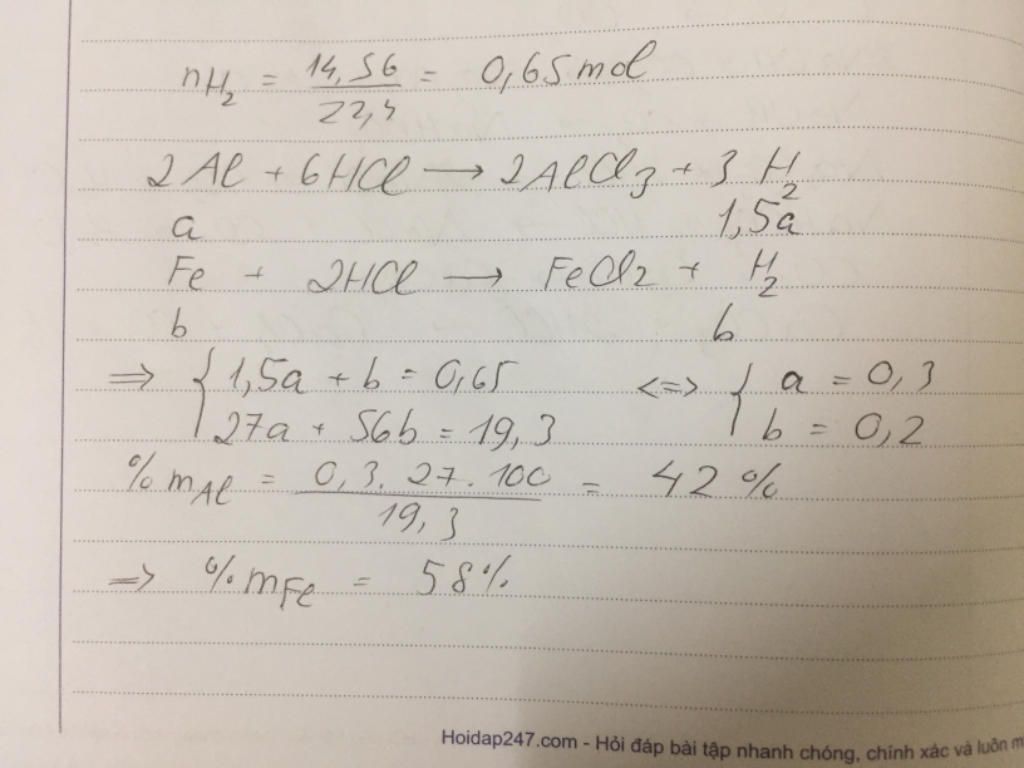 nH₂ = 14,56 / 22,4 = 0,65 mol
2Al + 6HCl → 2AlCl₃ + 3H₂
a 1,5a
Fe + 2HCl → FeCl₂ + H₂
b b
⇒ { 1,5a + b = 0,65 <=> { a = 0,3
27a + 56b = 19,3 b = 0,2
% mAl = 0,3. 27. 100 / 19,3 = 42 %
⇒ % mFe = 58%
Hoidap247.com - Hỏi đáp bài tập nhanh chóng, chính xác và luôn